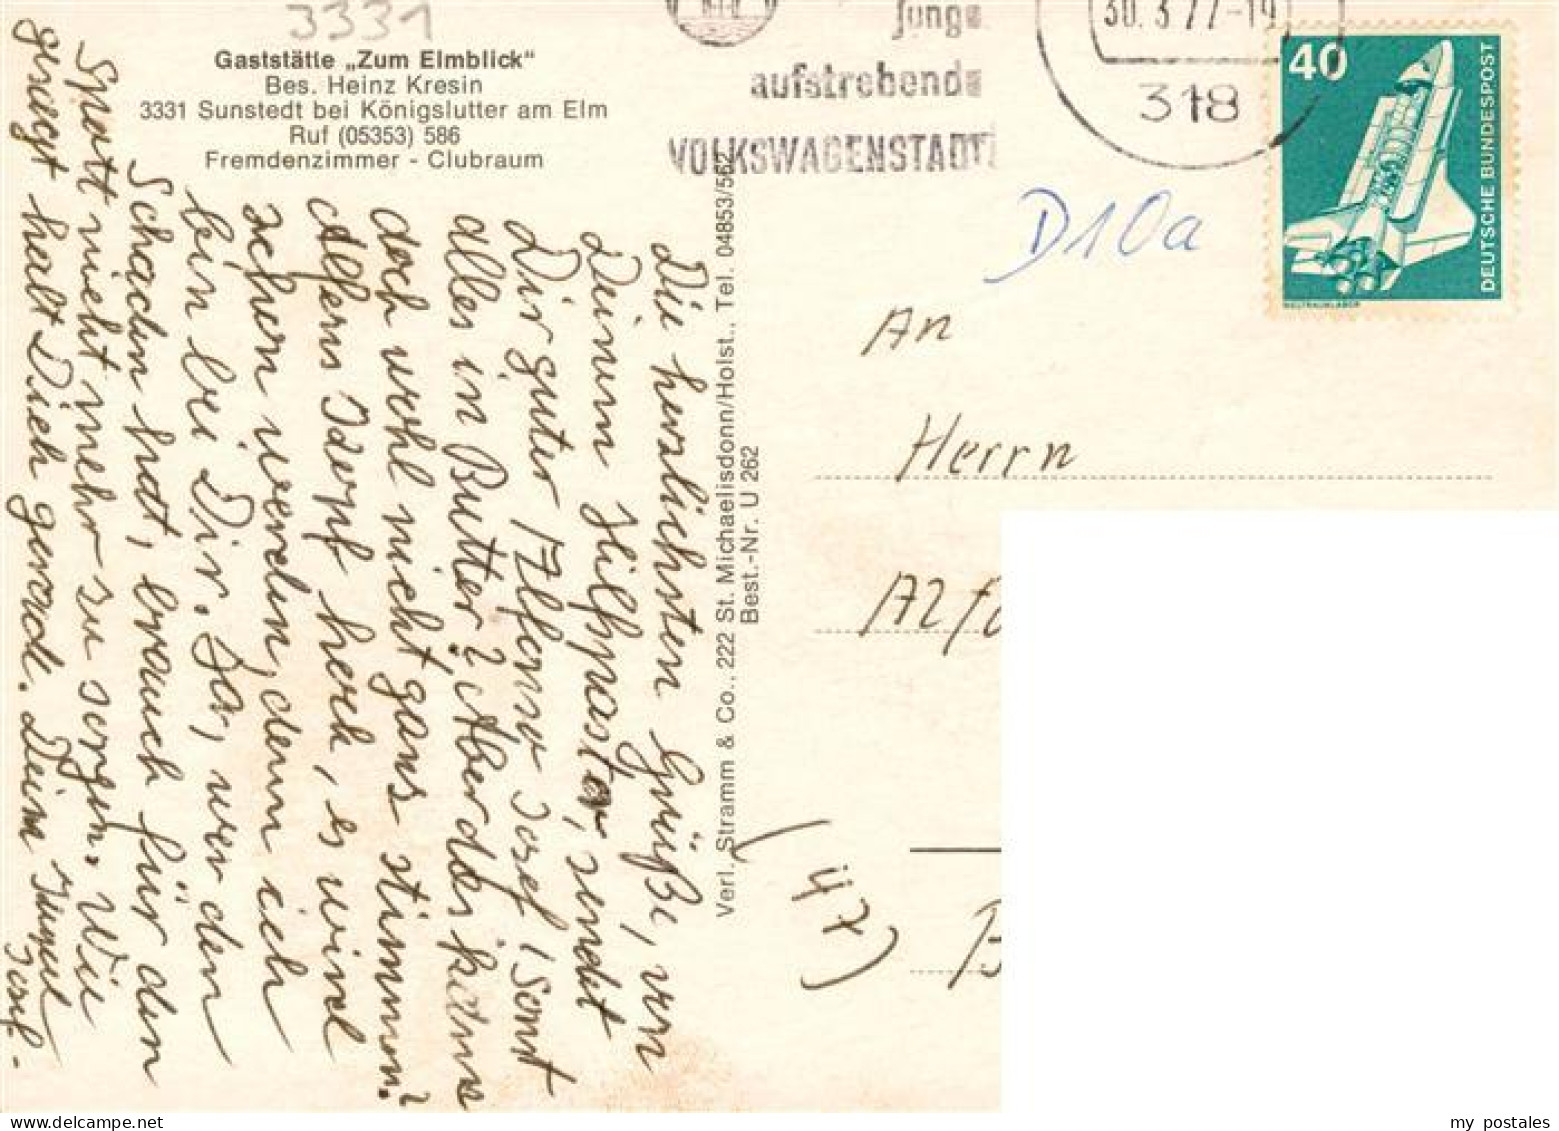 3331
Gaststätte „Zum Elmblick“
Bes. Heinz Kresin
3331 Sunstedt bei Königslutter am Elm
Ruf (05353) 586
Fremdenzimmer - Clubraum
Die herzlichsten Grüße, von
Deinem Hilfspastor, sendet
Dir guter Alfons Josef! Sonst
alles in Butter? Aber das kann
doch wohl nicht ganz stimmen?
Alfons Kopf hoch, es wird
schon werden, denn ich
bin bei Dir. Ja, wer den
Schaden hat, brauch für den
Spott nicht mehr zu sorgen. Wie
gesagt halt Dich gerade. Dein
Josef.-
Verl. Stramm & Co., 222 St. Michaelisdonn/Holst., Tel. 04853/562
Best.-Nr. U 262
junge
aufstrebende
VOLKSWAGENSTADT
30.3.77-19
318
40
DEUTSCHE BUNDESPOST
WELTRAUMLABOR
D10a
An
Herrn
Alfo
(47)
B
my_postales